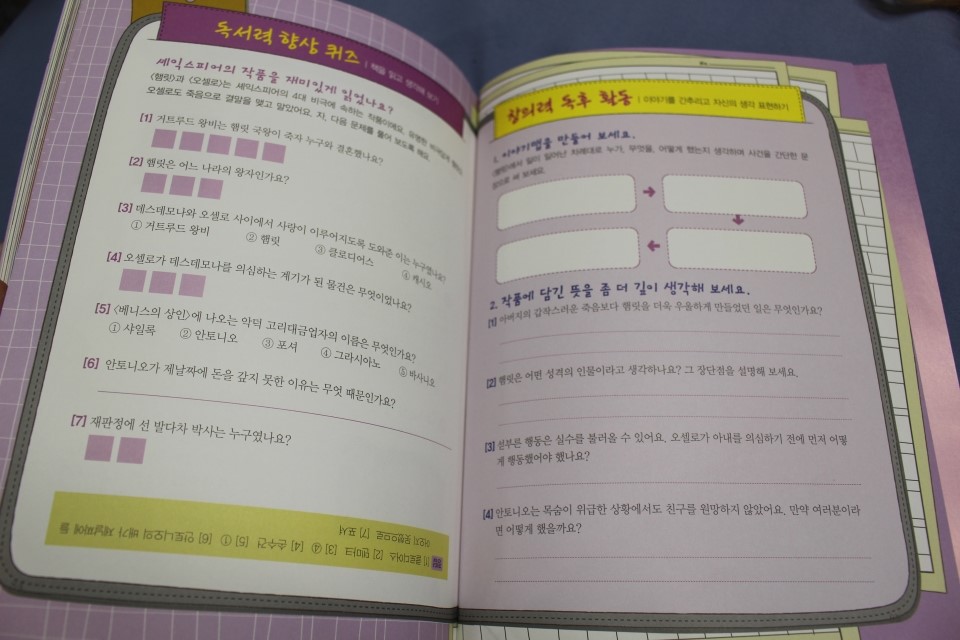 독서력 향상 퀴즈 | 책을 읽고 생각해 보기
셰익스피어의 작품을 재미있게 읽었나요?
〈햄릿〉과 〈오셀로〉는 셰익스피어의 4대 비극에 속하는 작품이에요. 유명한
오셀로도 죽음으로 결말을 맺고 말았어요. 자, 다음 문제를 풀어 보도록 해요.
[1] 거트루드 왕비는 햄릿 국왕이 죽자 누구와 결혼했나요?
[2] 햄릿은 어느 나라의 왕자인가요?
[3] 데스데모나와 오셀로 사이에서 사랑이 이루어지도록 도와준 이는 누구였나요?
① 거트루드 왕비 ② 햄릿 ③ 클로디어스 ④ 캐시오
[4] 오셀로가 데스데모나를 의심하는 계기가 된 물건은 무엇이었나요?
[5] 〈베니스의 상인〉에 나오는 악덕 고리대금업자의 이름은 무엇인가요?
① 샤일록 ② 안토니오 ③ 포셔 ④ 그라시아노 ⑤ 바사니오
[6] 안토니오가 제날짜에 돈을 갚지 못한 이유는 무엇 때문인가요?
[7] 재판정에 선 발다차 박사는 누구였나요?
정답 [1] 클로디어스 [2] 덴마크 [3] ④ [4] 손수건 [5] ① [6] 안토니오의 배가 제날짜에 들
어오지 못했으므로 [7] 포셔
창의력 독후 활동 | 이야기를 간추리고 자신의 생각 표현하기
1. 이야기맵을 만들어 보세요.
〈햄릿〉에서 일이 일어난 차례대로 누가, 무엇을, 어떻게 했는지 생각하며 사건을 간단한 문
장으로 써 보세요.
2. 작품에 담긴 뜻을 좀 더 깊이 생각해 보세요.
[1] 아버지의 갑작스러운 죽음보다 햄릿을 더욱 우울하게 만들었던 일은 무엇인가요?
[2] 햄릿은 어떤 성격의 인물이라고 생각하나요? 그 장단점을 설명해 보세요.
[3] 섣부른 행동은 실수를 불러올 수 있어요. 오셀로가 아내를 의심하기 전에 먼저 어떻
게 행동했어야 했나요?
[4] 안토니오는 목숨이 위급한 상황에서도 친구를 원망하지 않았어요. 만약 여러분이라
면 어떻게 했을까요?